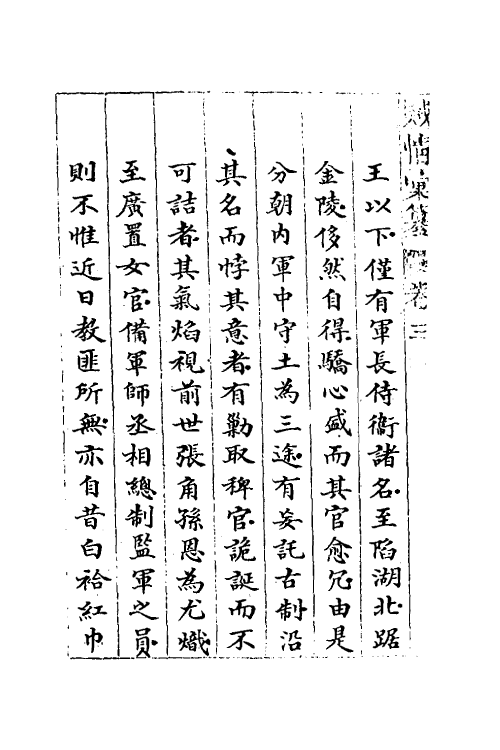 賊情彙纂 卷三
王以下僅有軍長侍衞諸名至陷湖北踞
金陵侈然自得驕心盛而其官愈冗由是
分朝内軍中守土為三途有妄託古制沿
其名而悖其意者有勦取稗官詭誕而不
可詰者其氣焰視前世張角孫恩為尤熾
至廣置女官備軍師丞相總制監軍之員
則不惟近日教匪所無亦自昔白袷紅巾